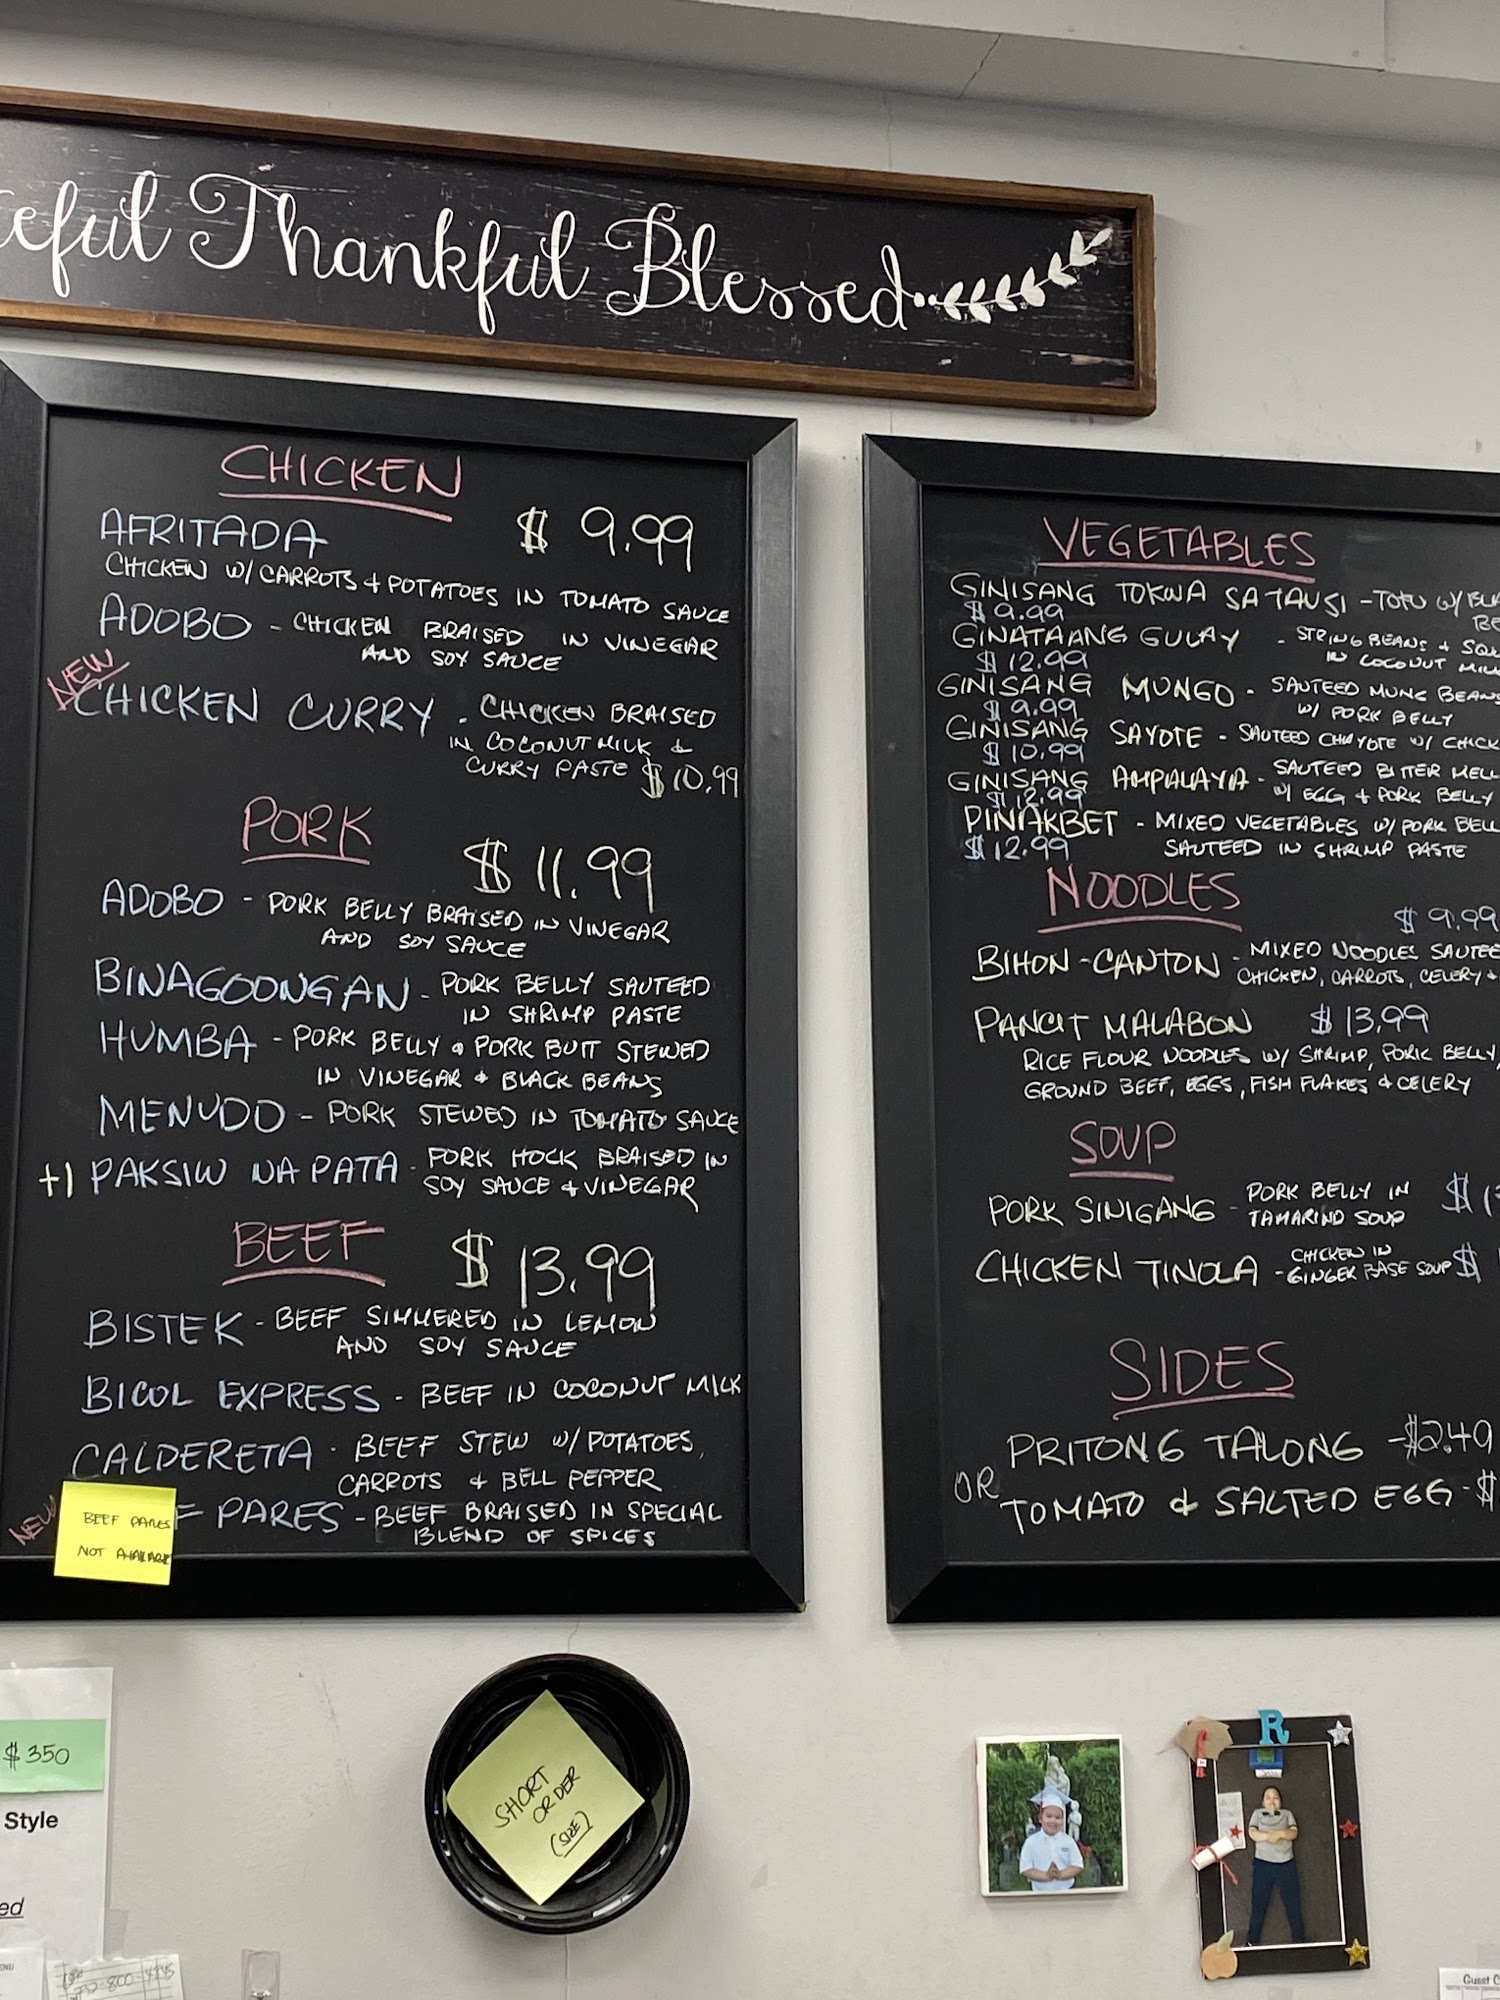 Thankful Blessed
CHICKEN
AFRITADA $ 9.99
CHICKEN W/ CARROTS + POTATOES IN TOMATO SAUCE
ADOBO - CHICKEN BRAISED IN VINEGAR
AND SOY SAUCE
NEW
CHICKEN CURRY - CHICKEN BRAISED
IN COCONUT MILK &
CURRY PASTE $10.99
PORK
$ 11.99
ADOBO - PORK BELLY BRAISED IN VINEGAR
AND SOY SAUCE
BINAGOONGAN - PORK BELLY SAUTEED
IN SHRIMP PASTE
HUMBA - PORK BELLY & PORK BUTT STEWED
IN VINEGAR & BLACK BEANS
MENUDO - PORK STEWED IN TOMATO SAUCE
+1 PAKSIW NA PATA - PORK HOCK BRAISED IN
SOY SAUCE & VINEGAR
BEEF
$ 13.99
BISTEK - BEEF SIMMERED IN LEMON
AND SOY SAUCE
BICOL EXPRESS - BEEF IN COCONUT MILK
CALDERETA - BEEF STEW W/ POTATOES,
CARROTS & BELL PEPPER
NEW
PARES - BEEF BRAISED IN SPECIAL
BLEND OF SPICES
BEEF PARES
NOT AVAILABLE
VEGETABLES
GINISANG TOKWA SA TAUSI - TOFU W/
$ 9.99
GINATAANG GULAY - STRING BEANS &
IN COCONUT
$ 12.99
GINISANG MUNGO - SAUTEED MUNG BEANS
W/ PORK BELLY
$ 9.99
GINISANG SAYOTE - SAUTEED CHAYOTE W/
$ 10.99
GINISANG AMPALAYA - SAUTEED BITTER
W/ EGG & PORK BELLY
$ 12.99
PINAKBET - MIXED VEGETABLES W/ PORK
SAUTEED IN SHRIMP PASTE
$ 12.99
NOODLES
$ 9.99
BIHON-CANTON - MIXED NOODLES
CHICKEN, CARROTS, CELERY &
PANCIT MALABON $ 13.99
RICE FLOUR NOODLES W/ SHRIMP, PORK BELLY,
GROUND BEEF, EGGS, FISH FLAKES & CELERY
SOUP
PORK SINIGANG - PORK BELLY IN
TAMARIND SOUP $
CHICKEN TINOLA - CHICKEN IN
GINGER BASE SOUP $
SIDES
PRITONG TALONG - $2.49
OR
TOMATO & SALTED EGG - $
$350
Style
SHORT
ORDER
(SIZE)
R
Guest